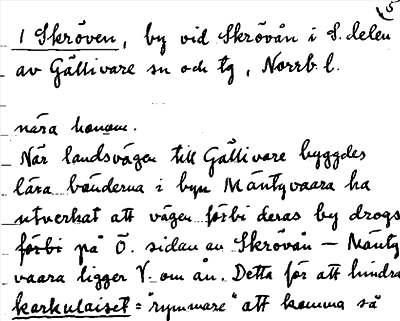 5
1 Skröven, by vid Skrövån i S. delen
av Gällivare sn och tg, Norrb. l.
nära honom.
När landsvägen till Gällivare byggdes
lära bönderna i byn Mäntyvaara ha
utverkat att vägen förbi deras by drogs
förbi på Ö. sidan av Skrövån – Mänty
vaara ligger V. om ån. Detta för att hindra
karkulaiset = "rymmare" att komma så